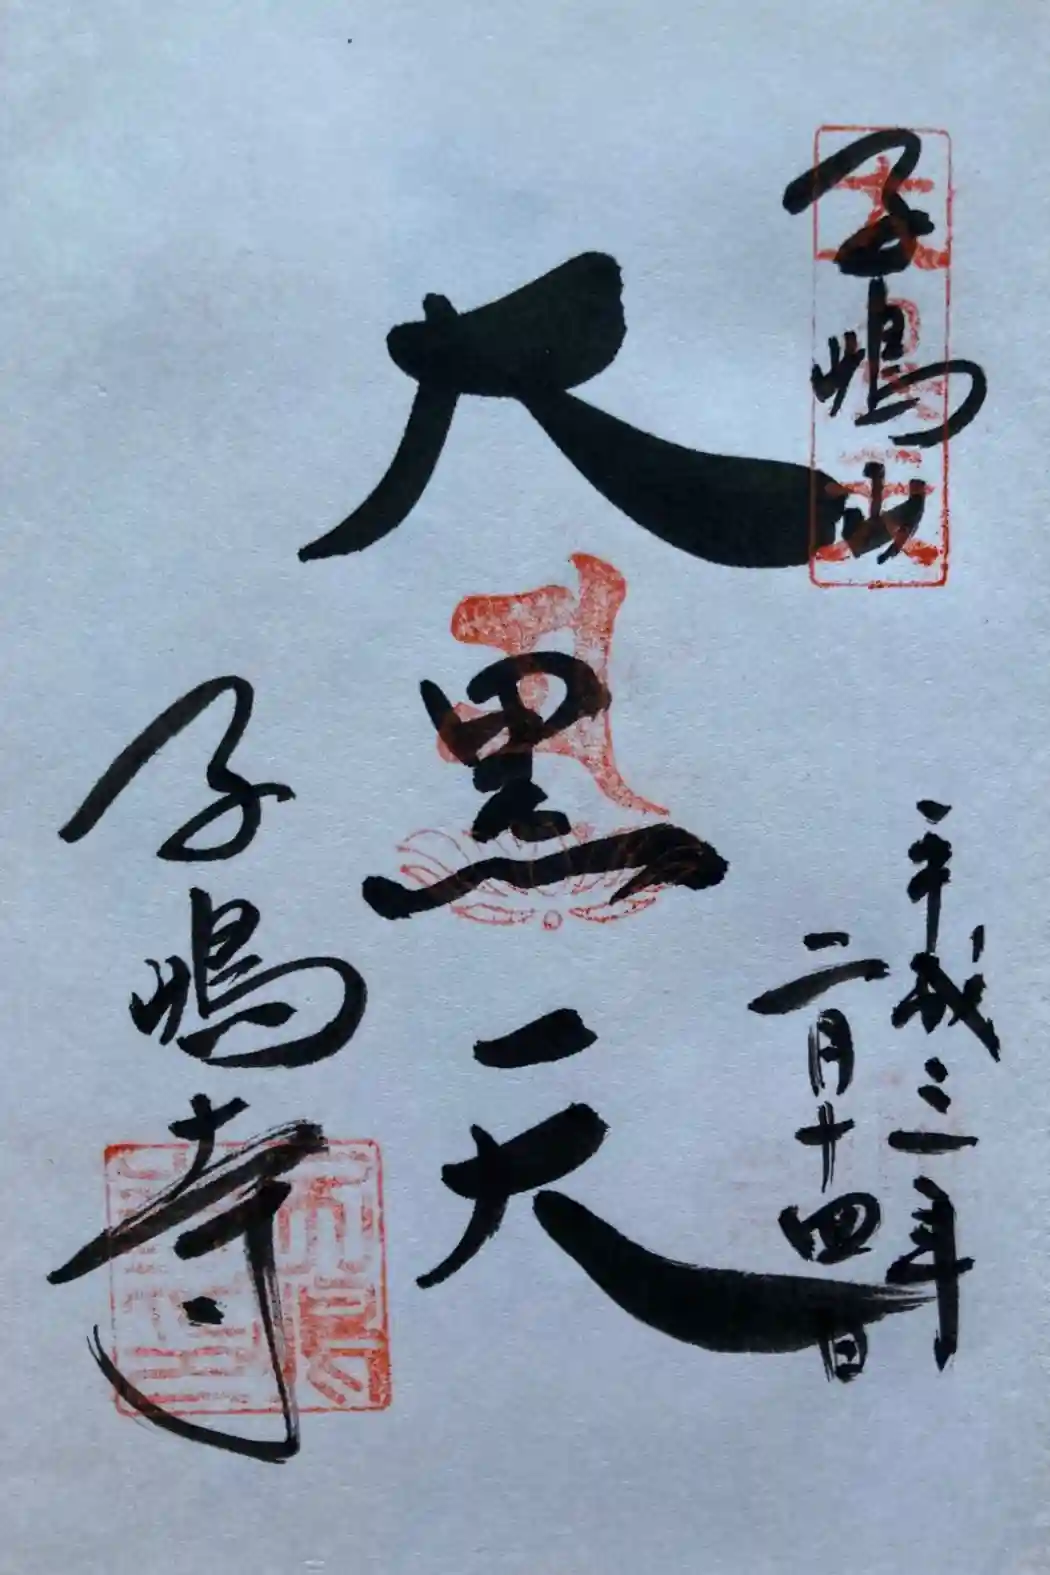 子嶋山
平成三年
二月十四日
大黒天
子嶋寺